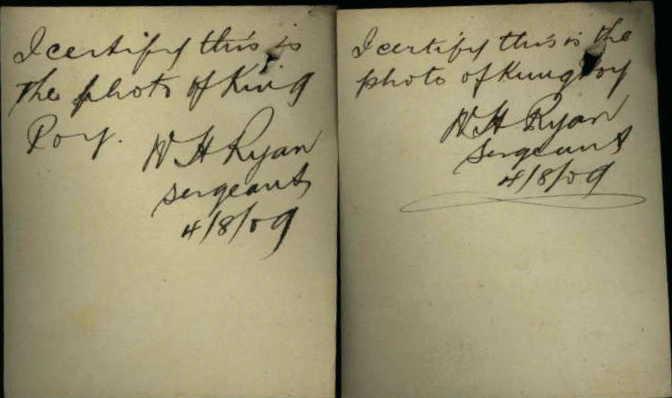 I certify this is
the photo of King
Poy.
W H Ryan
Sergeant
4/8/09
I certify this is the
photo of Kung Poy
W H Ryan
Sergeant
4/8/09